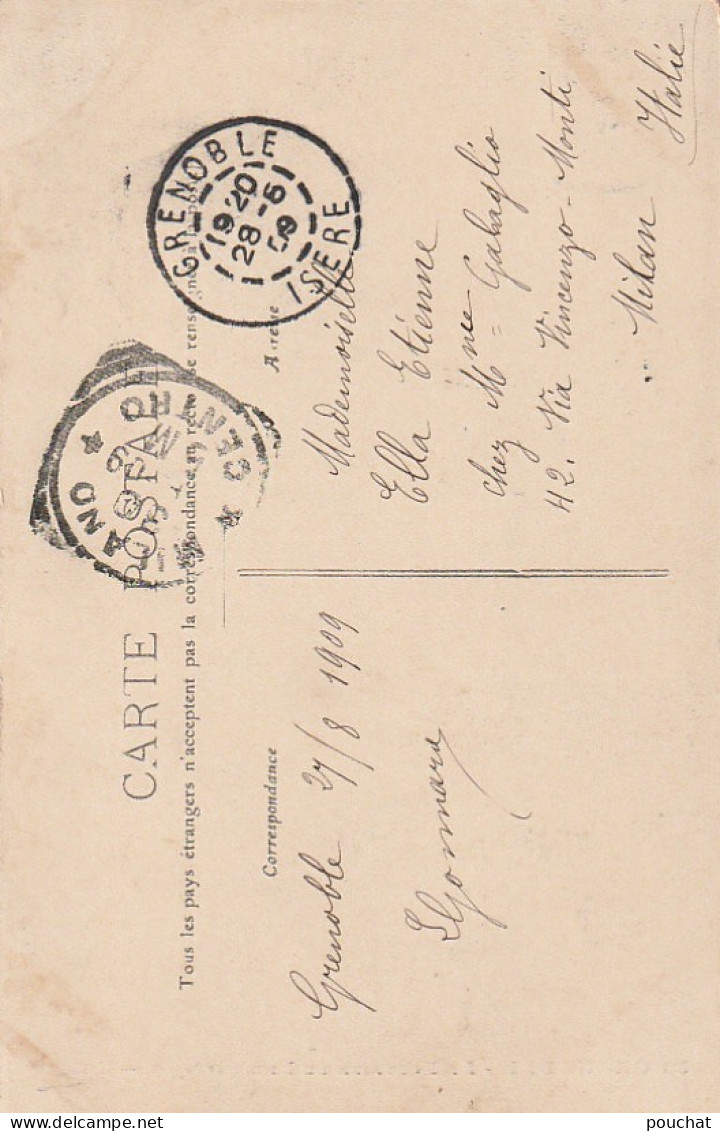 CARTE POSTALE
Tous les pays étrangers n'acceptent pas la correspondance au recto (se renseigner à la poste)
Correspondance
Adresse
GRENOBLE
19 20
28 -
09
ISERE
ANO CENTRO
Grenoble 27/8 1909
Mademoiselle
Ella Etienne
chez Mme Gabaglio
42. Via Vincenzo-Monti
Milan
Italie
pouchat